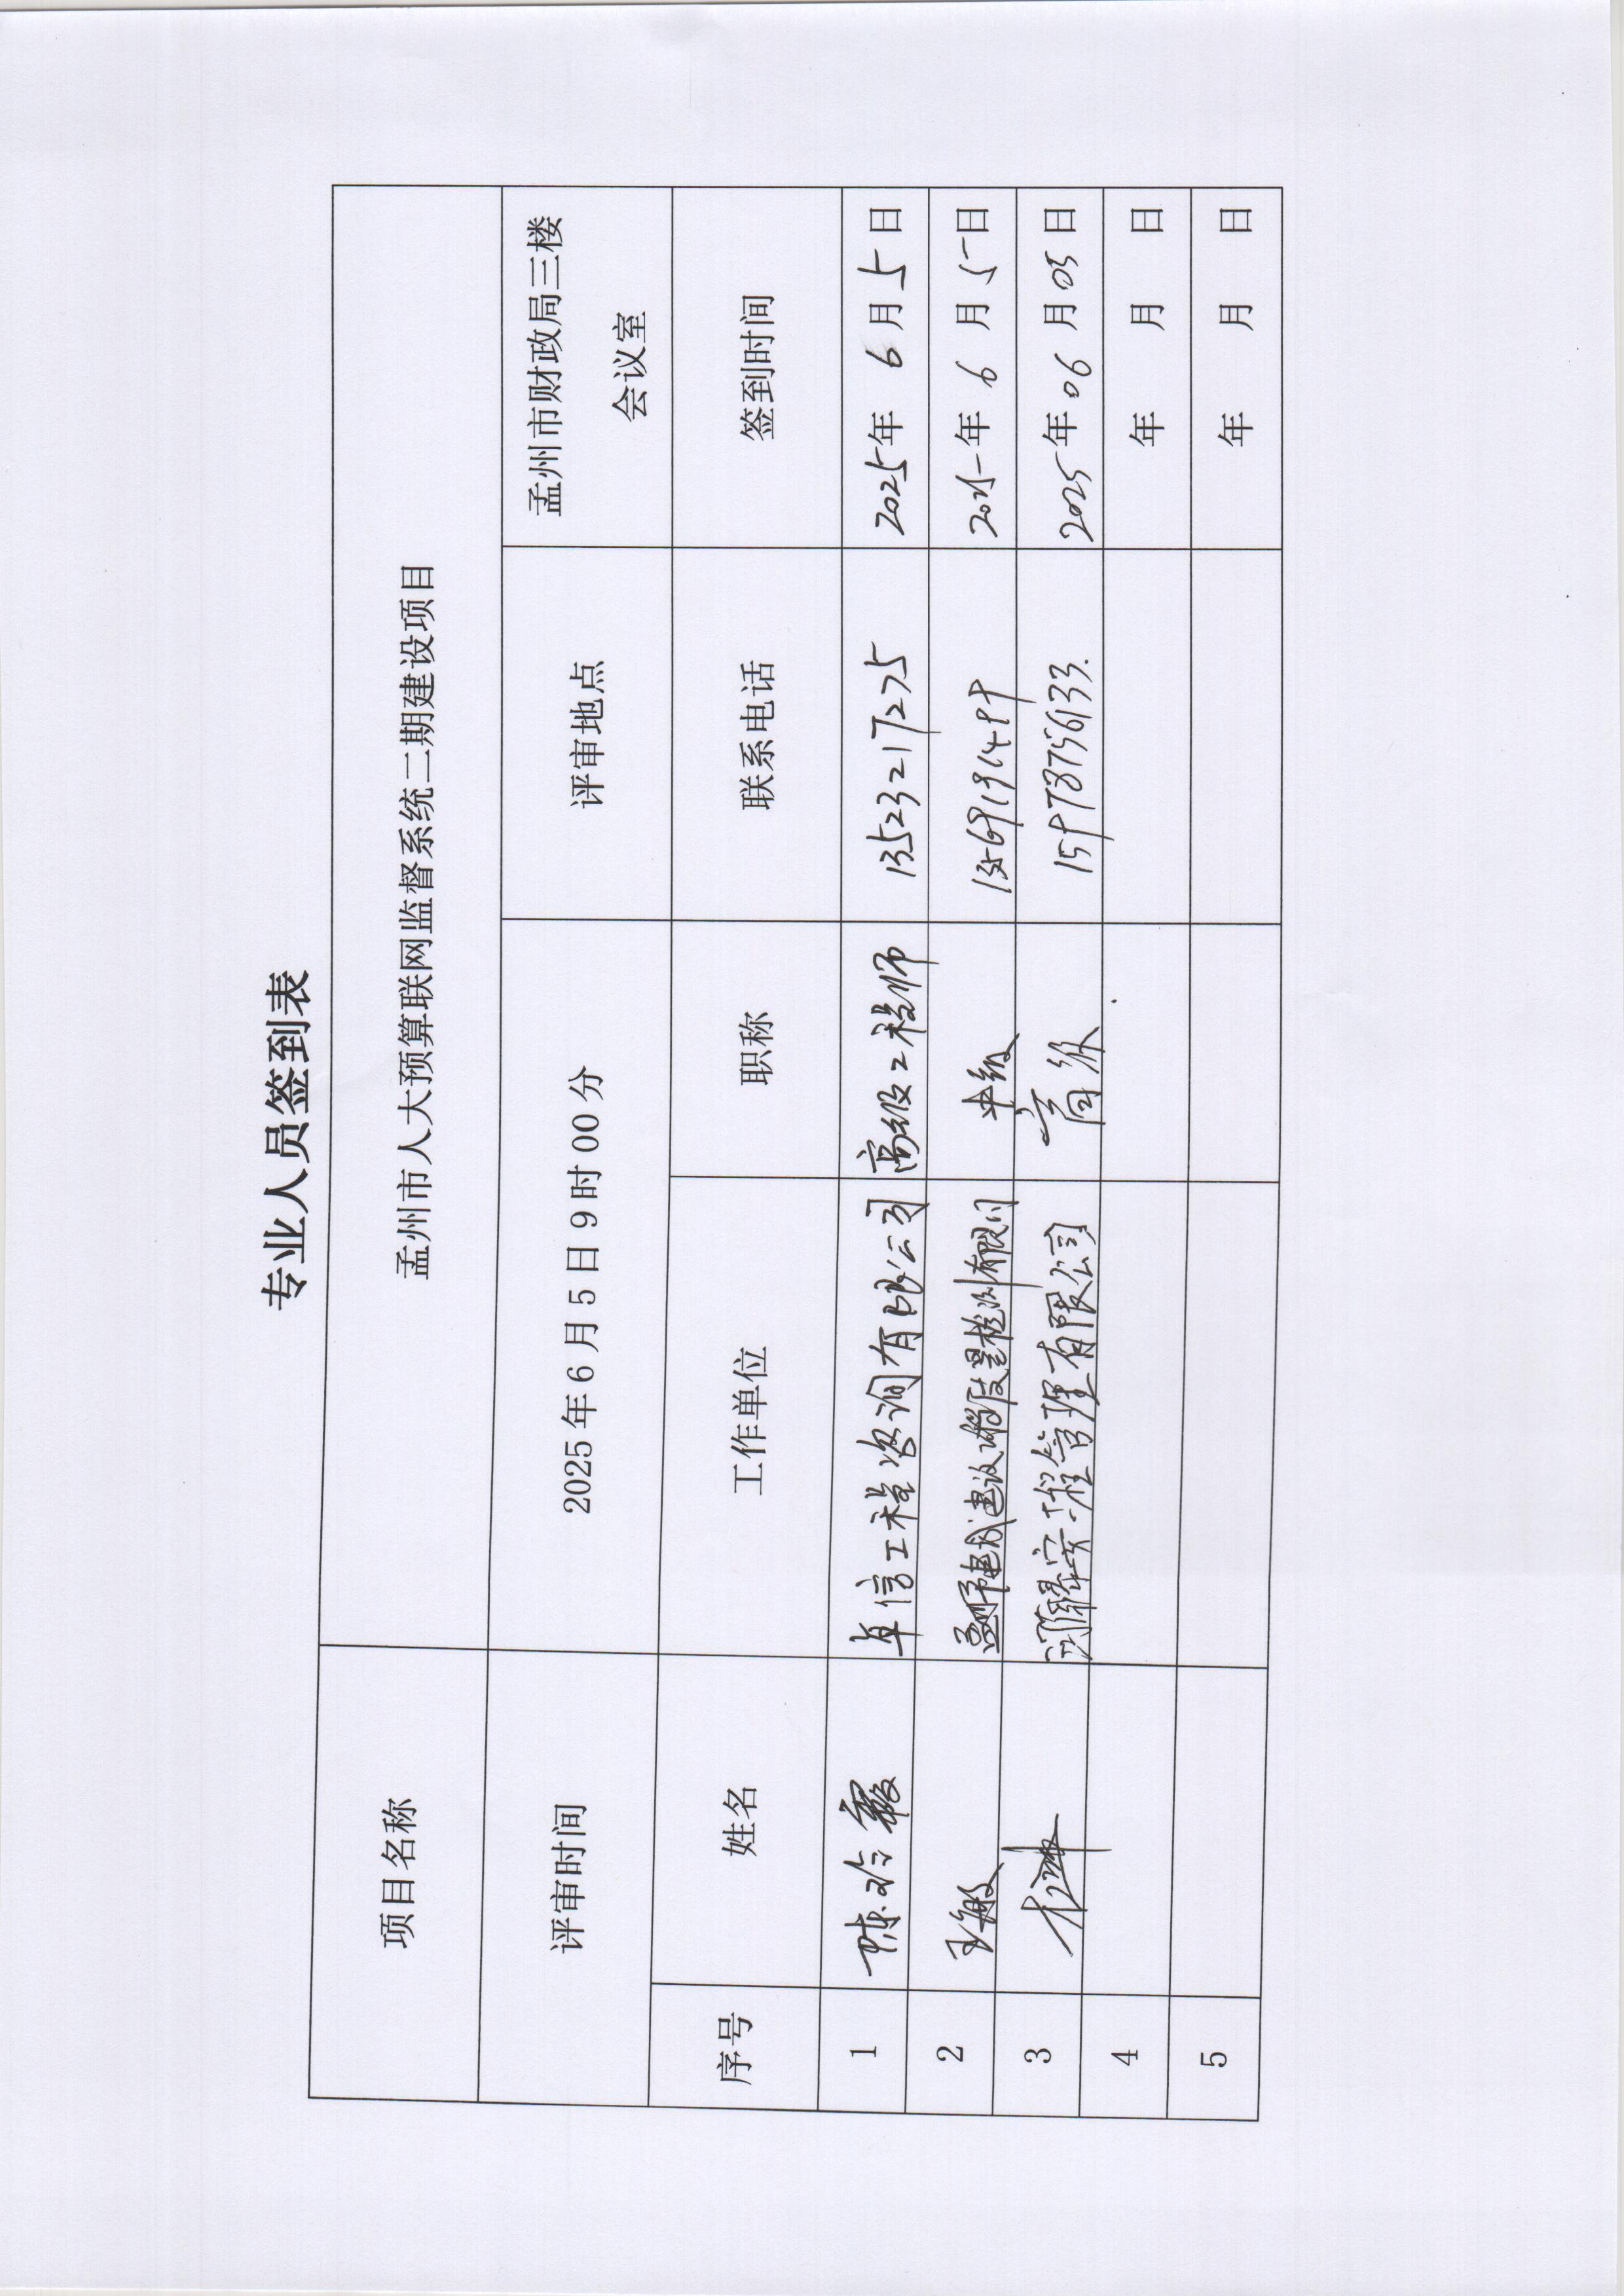 专业人员签到表
项目名称 孟州市人大预算联网监督系统二期建设项目
评审时间 2025年6月5日9时00分 评审地点 孟州市财政局三楼
会议室
序号 姓名 工作单位 职称 联系电话 签到时间
1 卓信工程咨询有限公司 高级工程师 13523217275 2025年6月5日
2 中级 2025年6月5日
3 工程管理有限公司 高级 2025年06月05日
4 年 月 日
5 年 月 日